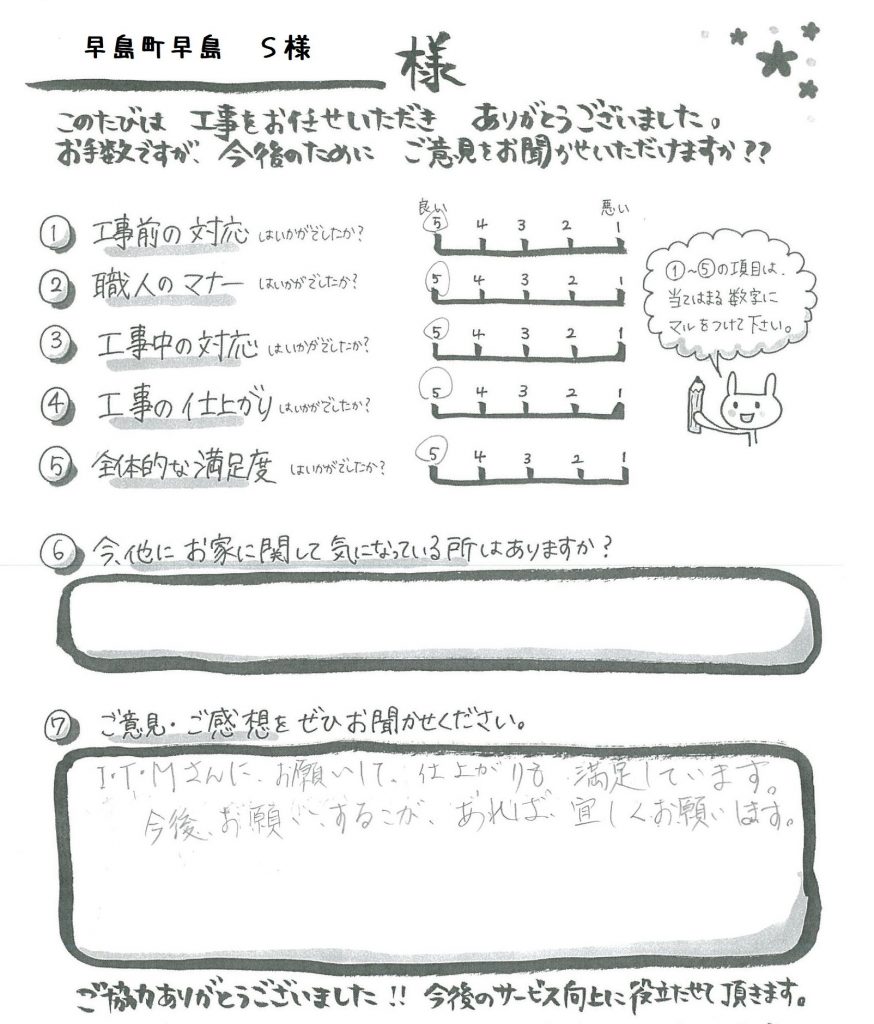 早島町早島　S様
様
このたびは 工事をお任せいただき ありがとうございました。
お手数ですが、今後のために ご意見をお聞かせいただけますか??
良い 悪い
① 工事前の対応 はいかがでしたか? 5 4 3 2 1
② 職人のマナー はいかがでしたか? 5 4 3 2 1
③ 工事中の対応 はいかがでしたか? 5 4 3 2 1
④ 工事の仕上がり はいかがでしたか? 5 4 3 2 1
⑤ 全体的な満足度 はいかがでしたか? 5 4 3 2 1
①~⑤の項目は、
当てはまる数字に
マルをつけて下さい。
⑥ 今、他にお家に関して気になっている所はありますか?
⑦ ご意見・ご感想をぜひお聞かせください。
I・T・Mさんに、お願いして、仕上がりも 満足しています。
今後、お願いするこが、あれば、宜しくお願いします。
ご協力ありがとうございました!! 今後のサービス向上に役立たせて頂きます。